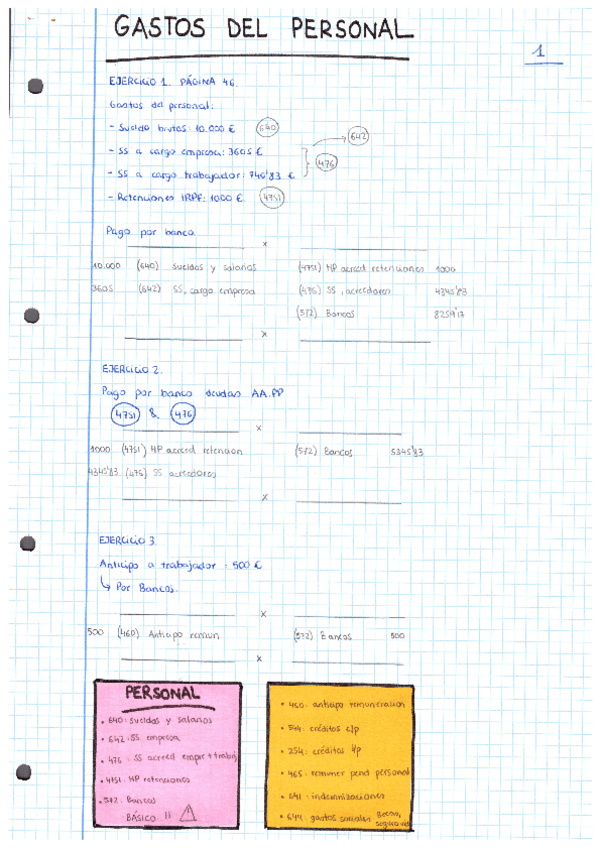 GASTOS DEL PERSONAL
1
EJERCICIO 1. PÁGINA 46.
Gastos del personal:
- Sueldo brutos: 10.000 € (640)
- SS a cargo empresa: 3605 € (642)
- SS a cargo trabajador: 740'83 € (476)
- Retenciones IRPF: 1000 € (4751)
Pago por banco
x
10.000 (640) sueldos y salarios (4751) HP acreed retenciones 1000
3605 (642) SS, cargo empresa (476) SS, acreedores 4345'83
(572) Bancos 8259'17
x
EJERCICIO 2.
Pago por banco deudas AA.PP
(4751) & (476)
x
1000 (4751) HP acreed retencion (572) Bancos 5345'83
4345'83 (476) SS acreedores
x
EJERCICIO 3
Anticipo a trabajador: 500 €
↳ Por Bancos.
x
500 (460) Anticipo remun (572) Bancos 500
x
PERSONAL
• 640: sueldos y salarios
• 642: SS empresa
• 476: SS acreed empre + trabaj
• 4751: HP retenciones
• 572: Bancos
BÁSICO !!
• 460: anticipo remuneracion
• 544: créditos c/p
• 254: créditos l/p
• 465: remuner pend personal
• 641: indemnizaciones
• 649: gastos sociales Becas, seguros